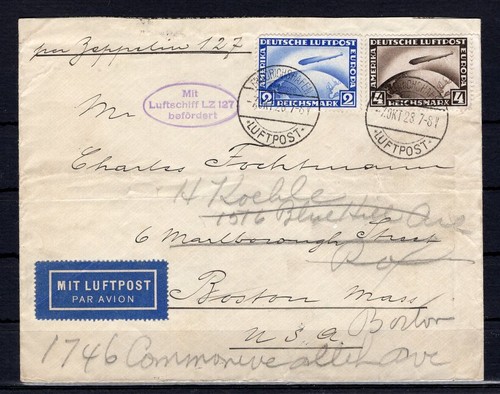 per Zeppelin 127
Mit
Luftschiff LZ 127
befördert
DEUTSCHE LUFTPOST
AMERIKA
EUROPA
2 REICHSMARK 2
DEUTSCHE LUFTPOST
AMERIKA
EUROPA
4 REICHSMARK 4
FRIEDRICHSHAFEN
-7.OKT 28.7-8V
LUFTPOST
-7.OKT 28.7-8V
LUFTPOST
Mr
Charles Fochtmann
H Koehle
1016 Blue Hill Ave
6 Marlborough Street
Rox
MIT LUFTPOST
PAR AVION
Boston Mass
U.S.A.
Boston
1746 Commonwealth Ave